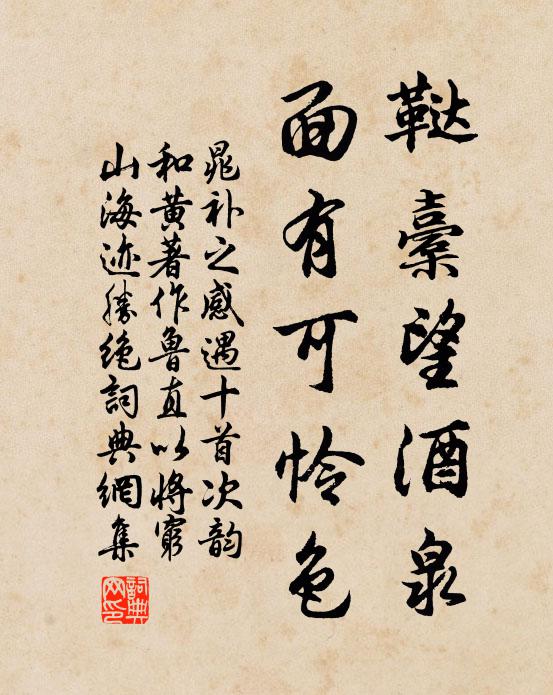 鞑橐望酒泉
面有可怜色
晁补之感遇十首次韵
和黄著作魯直以将窮
山海迹勝絶詞典網集
詞典网印